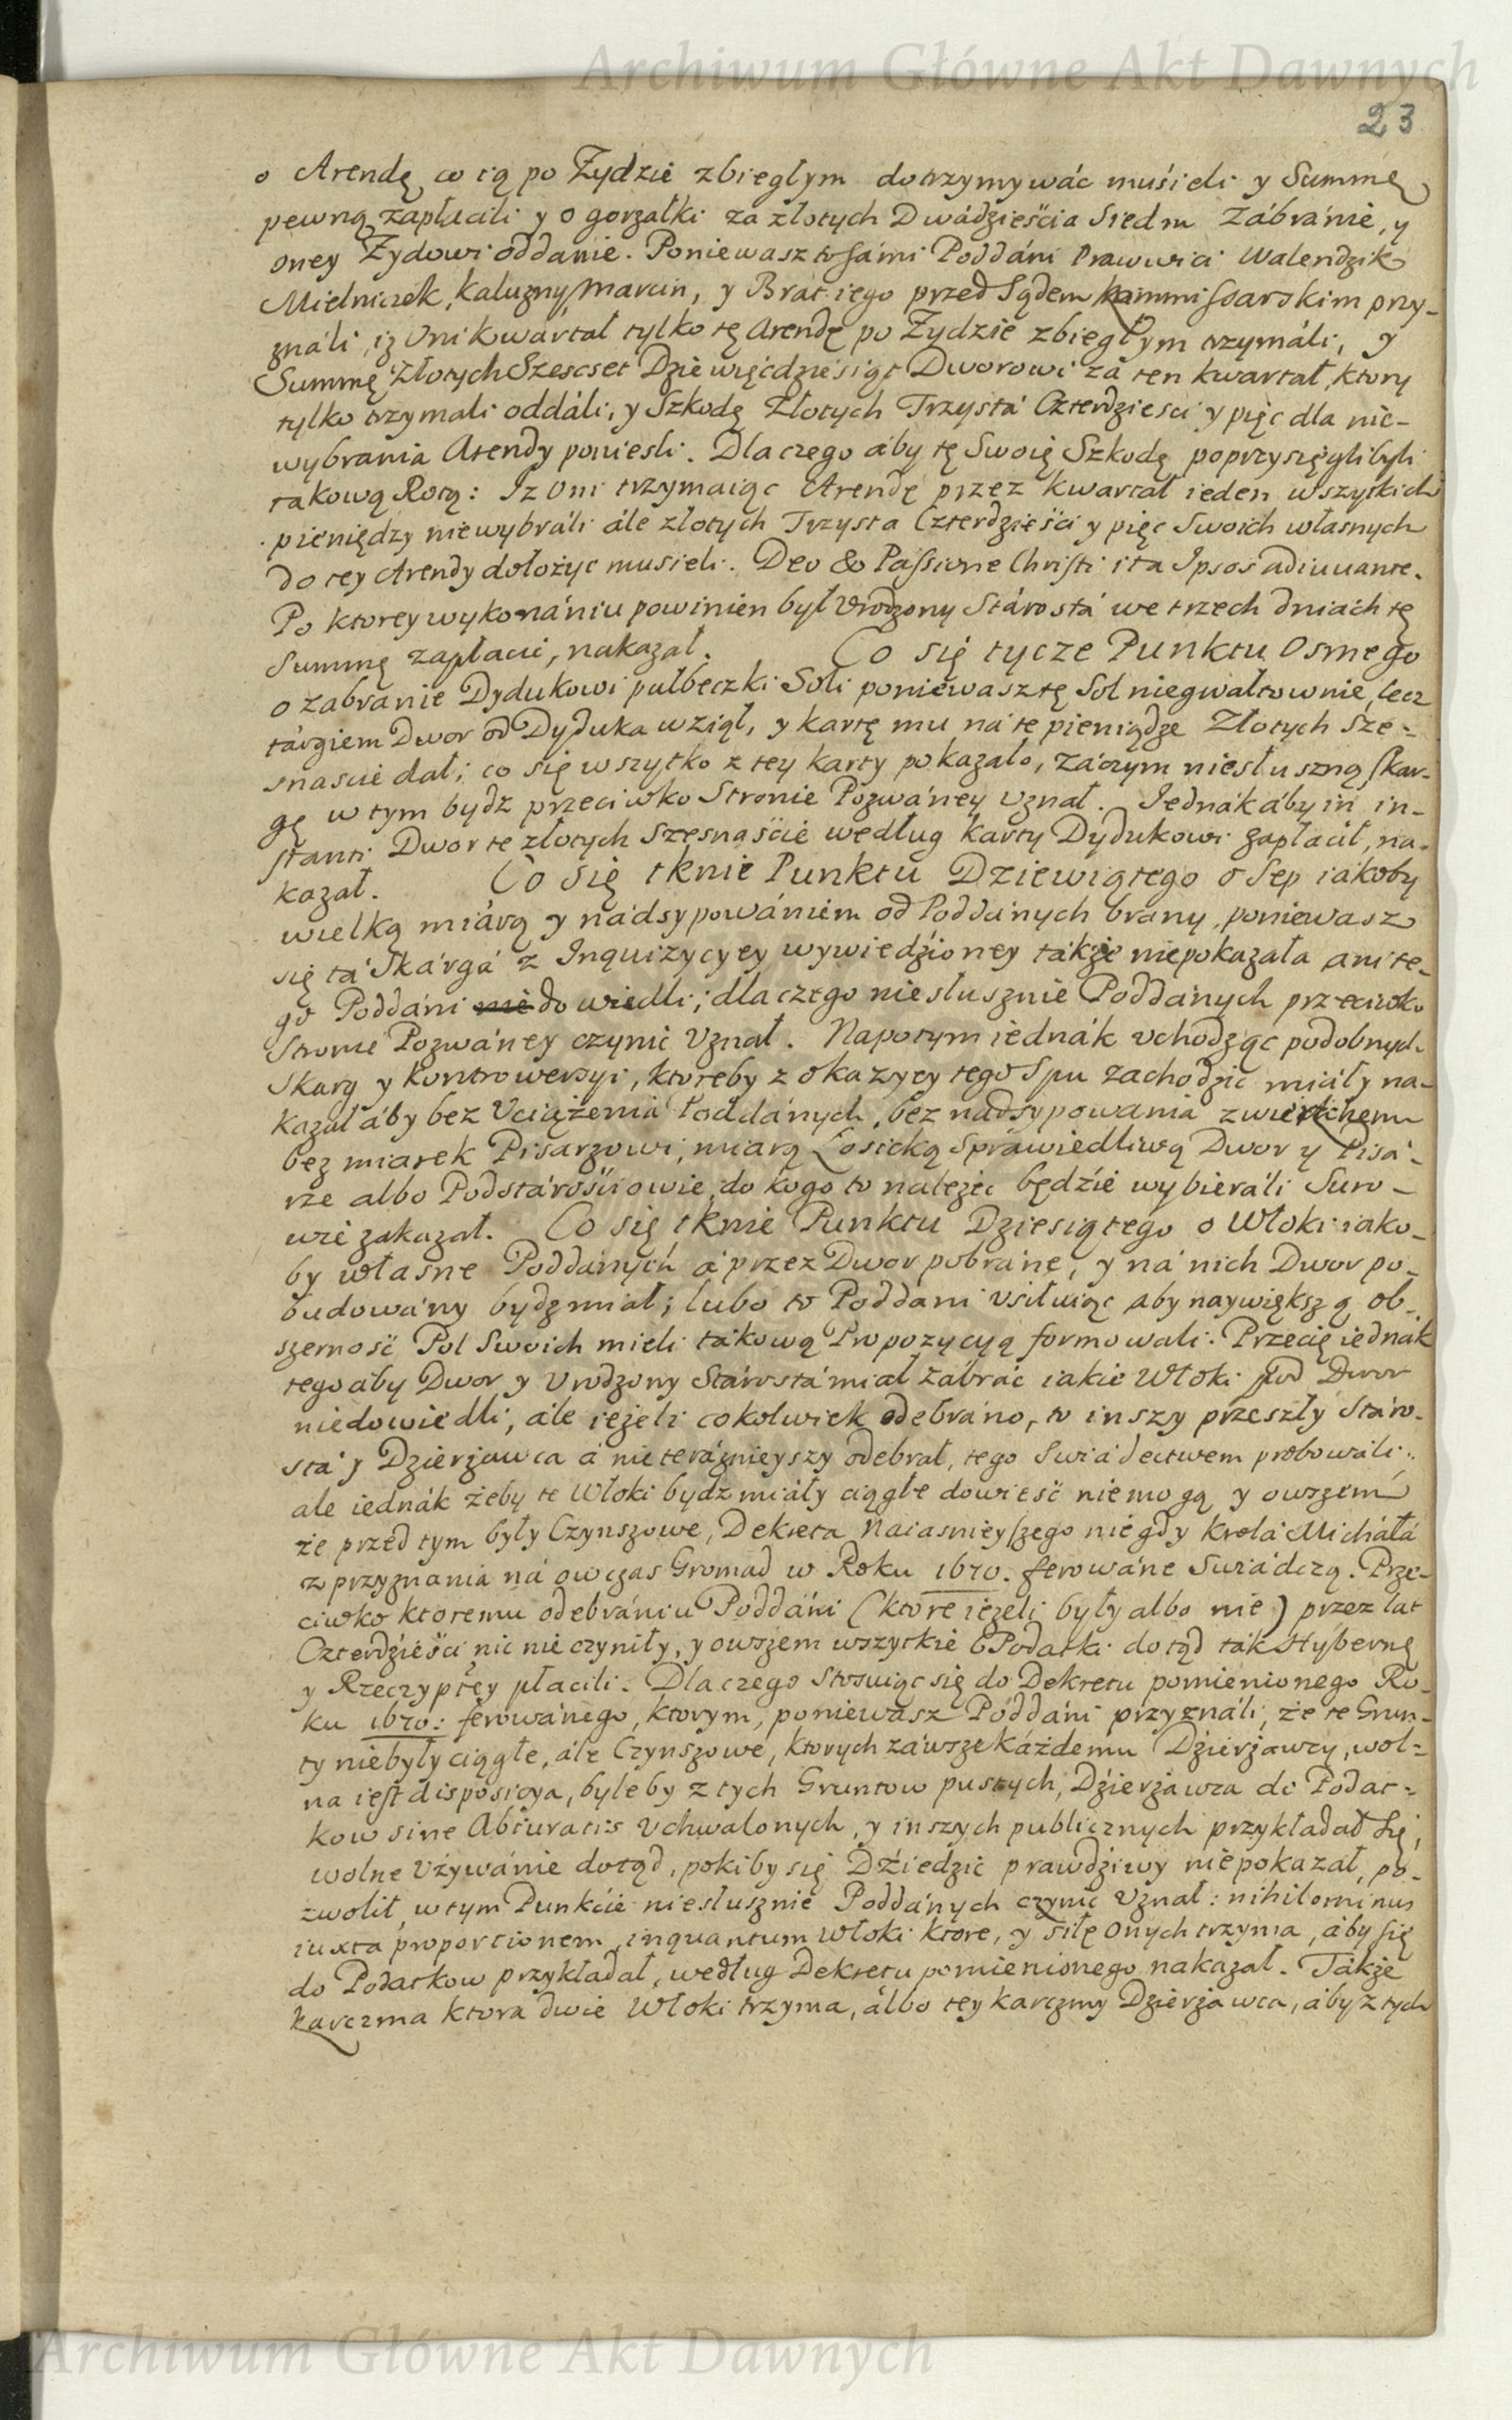 Archiwum Główne Akt Dawnych
23
o Arendę co ią po Zydzie zbiegłym dotrzymywáć muśieli y Summę
pewną zapłacili y o gorzałki za złotych Dwádzieścia Siedm Zábránie, y
oney Zydowi oddanie. Poniewasz to sámi Poddáni Prawuici Walendzik
Mielniczek, Kaluzny Marcin, y Brat iego przed Sądem Kommissoarskim przy-
ználi, iz Oni kwartał tylko tę Arendę po Zydzie zbiegłym trzymáli, y
Summę Złotych Szescset Dziewięćdziesiąt Dworowi zá ten kwartał, ktory
tylko trzymali oddáli, y Szkodę Złotych Trzystá Czterdziesci y pięc dla nie-
wybrania Arendy poniesli. Dlaczego áby tę Swoię Szkodę poprzysięglibyli
takową Rotą: Iz Oni trzymaiąc Arendę przez kwartał ieden wszytkich
pieniędzy niewybráli ále złotych Trzysta Czterdzieści y pięc Swoich własnych
do tey Arendy dołożyc musieli. Deo & Passione Christi ita Ipsos adiuuante.
Po ktorey wykonániu powinien był Vrodzony Stárostá we trzech dniach tę
Summę zapłacić, nakazał. Co się tycze Punktu Osmego
o zabranie Dydukowi pułbeczki Soli poniewasz tę Sol niegwałtownie, lecz
tárgiem Dwor od Dyduka wziął, y kartę mu ná te pieniądze Złotych Sze-
snascie dał; co się wszytko z tey karty pokazało, záczym niesłuszną skar-
gę w tym bydz przeciwko Stronie Pozwáney Vznał. Iednák áby in in-
stanti Dwor te złotych Szesnaście według karty Dydukowi zapłacił, na-
kazał. Co się tknie Punktu Dziewiątego o Sep iakoby
wielką miárą y nádsypowániem od Poddánych brany, poniewasz
się tá Skárgá z Inquizycyey wywiedźioney tákże niepokazała ani te-
go Poddáni nie dowiedli; dlaczego niesłusznie Poddánych przeciwko
Stronie Pozwáney czynić Vznał. Napotym iednák vchodząc podobnych
Skarg y Kontrowersyi, ktoreby z okazyey tego Spu zachodzic miáły na-
kazał áby bez Vciążenia Poddánych, bez nadsypowania z wierzchem
bez miarek Pisarzowi, miarą Łosicką Spráwiedliwą Dwor y Pisá-
rze albo Podstárościowie, do kogo to należec będźie wybieráli Suro-
wie zakazał. Co się tknie Punktu Dziesiątego o Włoki iako-
by własne Poddánych á przez Dwor pobráne, y ná nich Dwor po-
budowány bydz miał; lubo to Poddani vsiłuiąc aby naywiększą ob-
szerność Pol Swoich mieli tákową Propozycyą formowali. Przecię iednák
tego aby Dwor y Vrodzony Stárostá miał zábráć iakie Włoki pod Dwor
niedowiedli, ále ieżeli cokolwiek odebráno, to inszy przeszły Stáro-
stá y Dzierżawca á nie teráznieyszy odebrał, tego Swiádectwem probowáli:
ale iednák żeby te Włoki bydz miáły ciągłe dowieść niemogą y owszem
że przed tym były Czynszowe, Dekreta Naiasnieyszego niegdy Krolá Micháłá
z przyznania ná owczas Gromad w Roku 1670. ferowáne Swiádczą. Prze-
ciwko ktoremu odebrániu Poddáni (ktore ieżeli były albo nie) przez lat
Czterdzieści nic nie czyniły, y owszem wszytkie Podatki dotąd ták Hybernę
y Rzeczyptey płacili. Dlaczego Stosuiąc się do Dekretu pomienionego Ro-
ku 1670: ferowánego, ktorym, poniewasz Poddáni przyználi, że te Grun-
ty niebyły ciągłe, ále Czynszowe, ktorych záwsze káżdemu Dzierżawcy, wol-
na iest disposicya, byleby z tych Gruntow pustych, Dzierżawca do Podat-
kow sine Abiuratis Vchwalonych, y inszych publicznych przykładał Się,
wolne Vżywánie dotąd, pokiby się Dźiedzic prawdźiwy niepokazał, po-
zwolił, w tym Punkcie niesłusznie Poddánych czynić Vznał: nihilominus
iuxta proportionem, inquantum Włoki ktore, y siłę onych trzyma, áby się
do Podatkow przykładał, według Dekretu pomienionego nakazał. Tákże
karczma ktora dwie Włoki trzyma, álbo tey karczmy Dzierżawca, áby z tych
Archiwum Główne Akt Dawnych